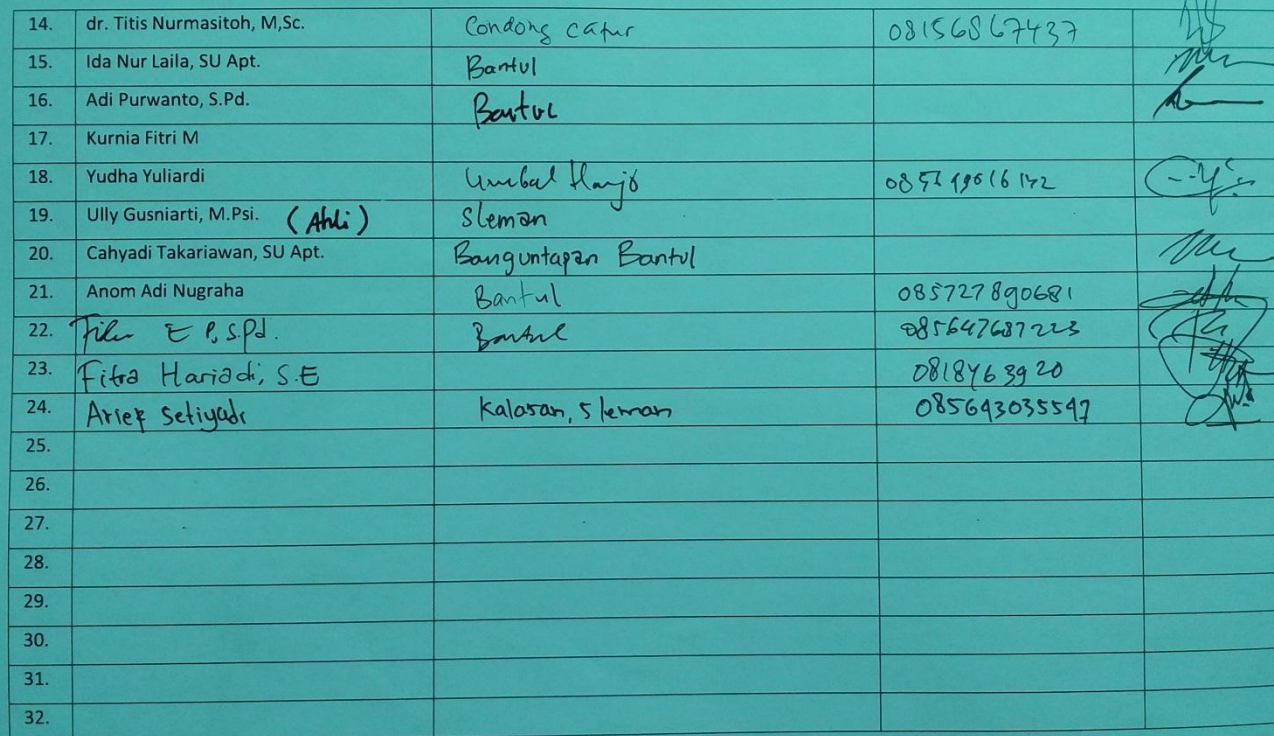 14. dr. Titis Nurmasitoh, M,Sc. Condong catur 08156867437
15. Ida Nur Laila, SU Apt. Bantul
16. Adi Purwanto, S.Pd. Bantul
17. Kurnia Fitri M
18. Yudha Yuliardi
19. Ully Gusniarti, M.Psi. (Ahli) Sleman
20. Cahyadi Takariawan, SU Apt. Banguntapan Bantul
21. Anom Adi Nugraha Bantul 085727890681
22. E P, S.Pd. Bantul 085647687223
23. Fitra Hariadi, S.E 0818463920
24. Arief Setiyadi Kalasan, Sleman 085643035547
25.
26.
27.
28.
29.
30.
31.
32.